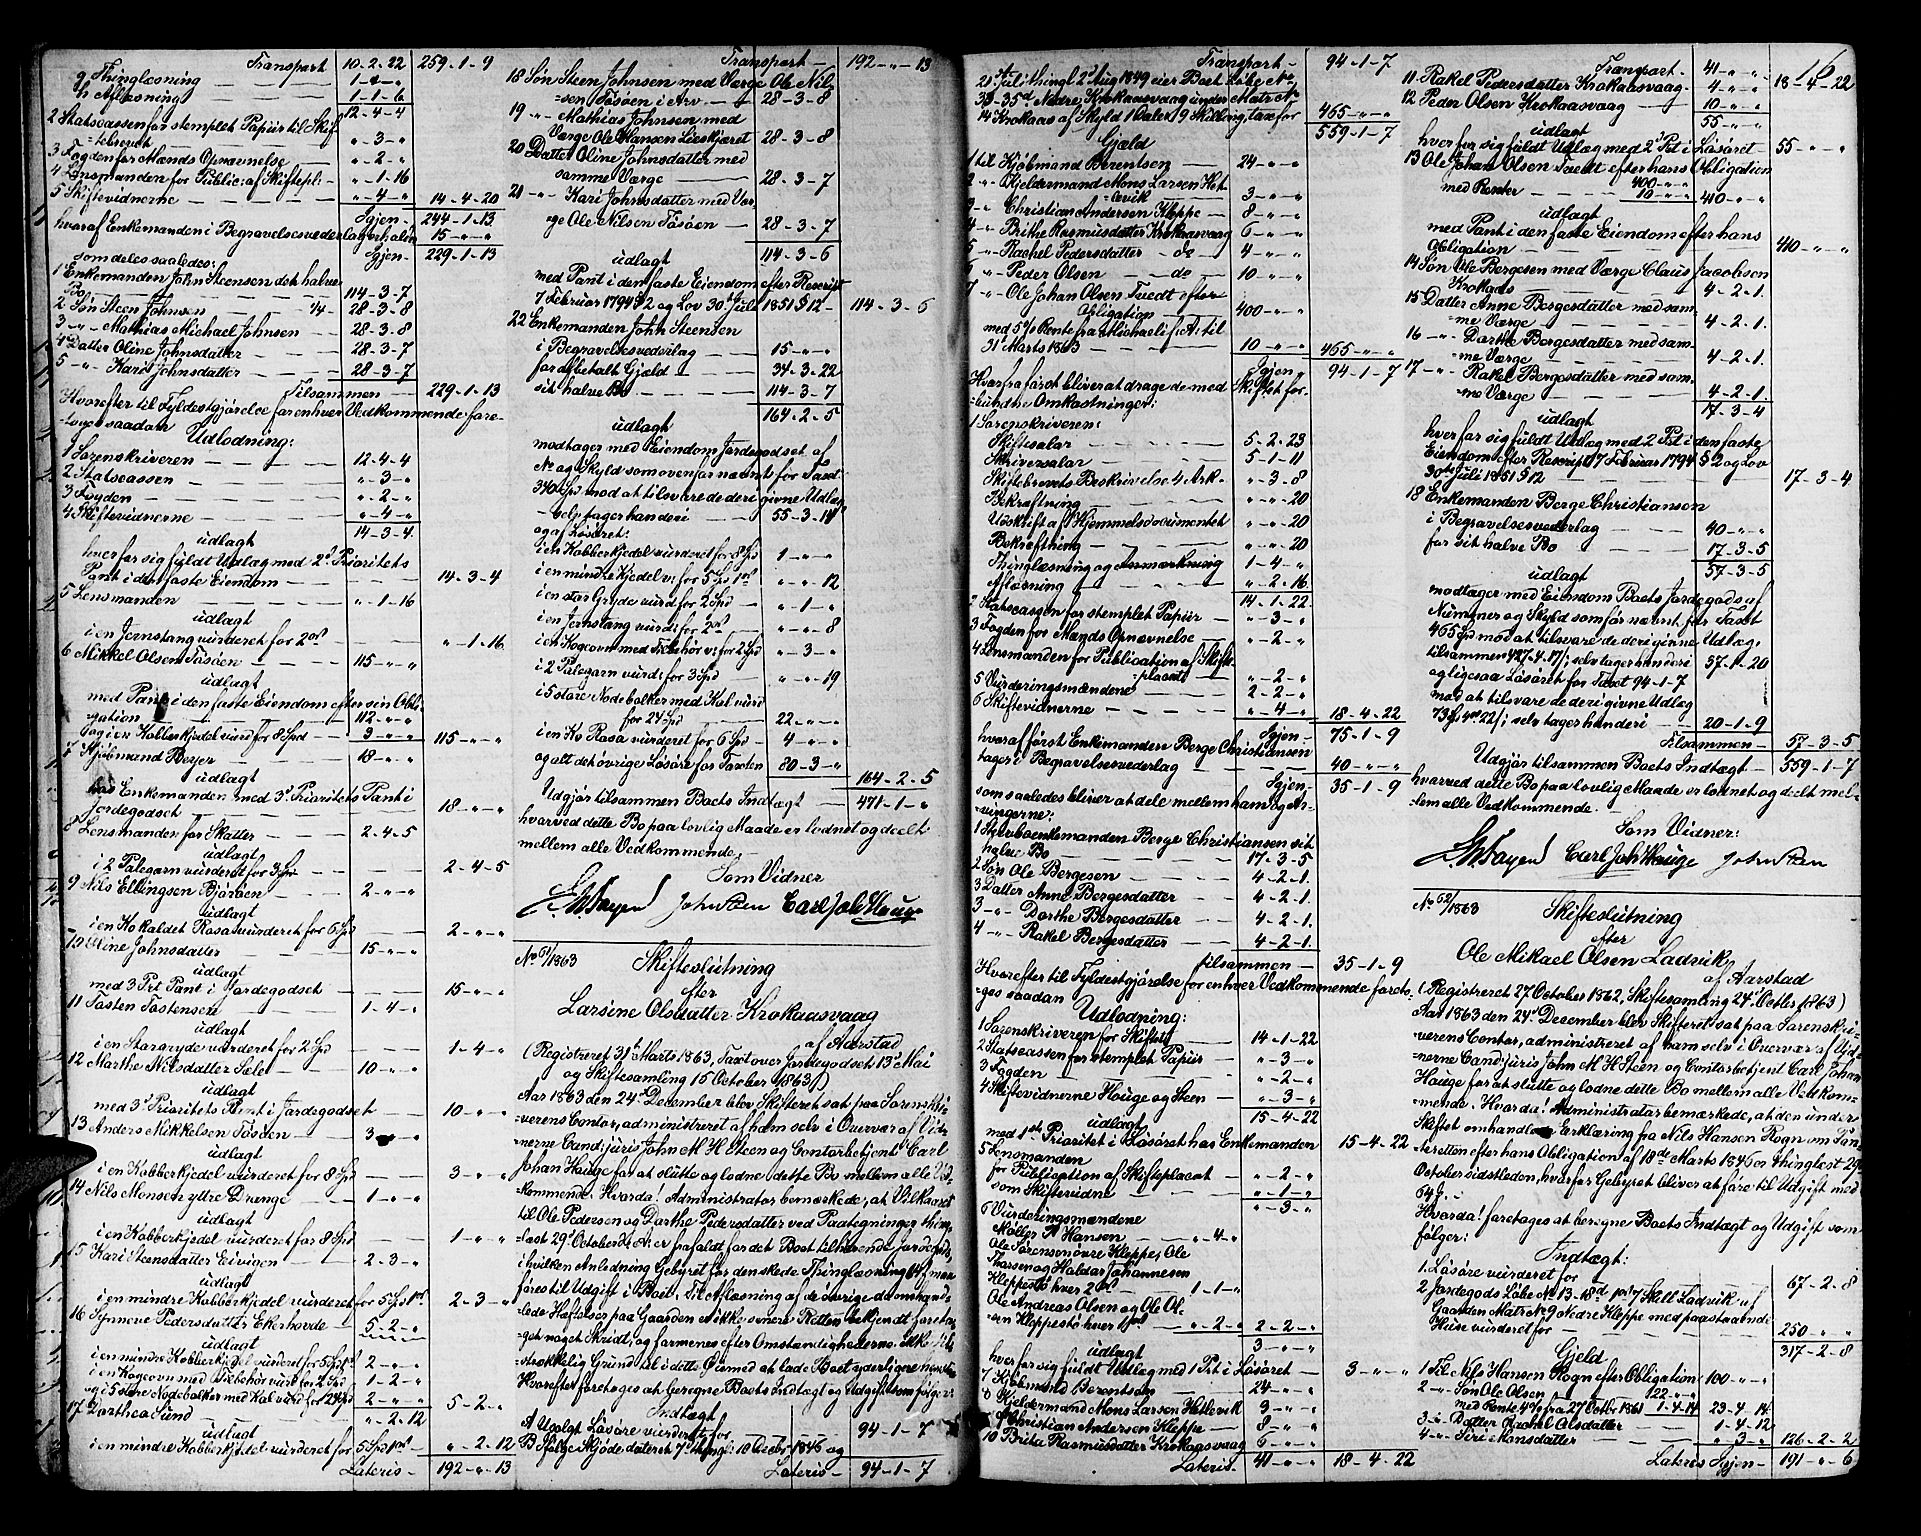 Transport 10-2-22 259-1-9
g Thinglæsning — 1-"-"
h Aflæsning — 1-1-6
12-4-4
2 Statscassen for stemplet Papiir til Skif-
tebrevet — "-3-"
3 Fogden for Mænds Opnævnelse — "-2-"
4 Lensmanden for Public: af Skiftepl:- "-1-16
5 Skiftevidnerne — "-4-" 14-4-20
Igjen- 244-1-13
hvoraf Enkemanden i Begravelsesvederlag erholder 15-"-"
som deles saaledes: Igjen- 229-1-13
1 Enkemanden John Steensen det halve
Bo — 114-3-7
2 Søn Steen Johnsen — 1/4- 28-3-8
3 -"- Mathias Michael Johnsen — 28-3-8
4 Datter Oline Johnsdatter — 28-3-7
5 -"- Kari Johnsdatter — 28-3-7
Tilsammen — 229-1-13
Hvorefter til Fyldestgjørelse for enhver Vedkommende fore-
toges saadan Udlodning:
1 Sorenskriveren — 12-4-4
2 Statscassen — "-3-"
3 Fogden — "-2-"
4 Skiftevidnerne — "-4-"
udlagt 14-3-4
hver for sig fuldt Udlæg med 2d Prioritets
Pant i den faste Eiendom — 14-3-4
5 Lensmanden — "-1-16
udlagt
i en Jernstang vurderet for 2 ort — "-1-16
6 Mikkel Olsen Tøsøen — 115-"-"
udlagt
med Pant i den faste Eiendom efter sin Obli-
gation — 112-"-"
og i en Kobberkjedel vurd for 8 Spd — 3-"-" 115-"-"
7 Kjøbmand Beyer — 18-"-"
udlagt
hos Enkemanden med 3d Prioritets Pant i
Jordegodset — 18-"-"
8 Lensmanden for Skatter — 2-4-5
udlagt
i 2 Palegarn vurderet for 3 Spd — 2-4-5
9 Nils Ellingsen Bjørøen — 2-"-"
udlagt
i en Ko kaldet Rosa vurderet for 6 Spd — 2-"-"
10 Oline Johnsdatter — 15-"-"
udlagt
med 3 Prt Pant i Jordegodset — 15-"-"
11 Tosten Tostensen — 1-4-"
udlagt
i en Stor gryde vurderet for 2 Spd — 1-4-"
12 Marthe Nilsdatter Sele — 10-"-"
udlagt
med 3d Prioritets Pant i Jordegodset — 10-"-"
13 Anders Mikkelsen Tøsøen — 3-"-"
udlagt
i en Kobberkjedel vurderet for 8 Spd — 3-"-"
14 Nils Monsen yttre Drange — 1-"-"
udlagt
i en Kobberkjedel vurderet for 8 Spd — 1-"-"
15 Kari Steensdatter Eivigen — 2-3-"
udlagt
i en mindre Kobberkjedel vurderet for 5 Spd 1 ort 2-3-"
16 Synnove Pedersdatter Ekerhovde — 5-2-"
udlagt
i en mindre Kobberkjedel vurderet for 5 Spd 1 ort 2-"-"
i en Kogeovn med Tilbehør vurd for 2 Spd 1-2-"
og i 5 støre Nodebolker med Kal vurd for 24 Spd 2-"-" 5-2-"
17 Dorthea Sund — "-2-12
udlagt
i en mindre Kobberkjedel vurderet for 5 Spd 1 ort "-2-12
Lateris- 192-"-13
Transport — 192-"-13
18 Søn Steen Johnsen med Værge Ole Nil-
sen Tøsøen i Arv — 28-3-8
19 -"- Mathias Johnsen med
Værge Ole Hansen Lieskjæret 28-3-8
20 Datter Oline Johnsdatter med
samme Værge — 28-3-7
21 -"- Kari Johnsdatter med Vær-
ge Ole Nilsen Tøsøen — 28-3-7
udlagt 114-3-6
med Pant i den faste Eiendom efter Rescript
7 Februar 1794 § 2 og Lov 30t Juli 1851 § 12 — 114-3-6
22 Enkemanden John Steensen
i Begravelsesvederlag — 15-"-"
for afbetalt Gjæld — 34-3-22
sit halve Bo — 114-3-7
udlagt 164-2-5
modtager med Eiendom Jordegodset af
No og Skyld som ovenfor nævnt for Taxt
340 Spd mod at tilsvare de deri givne Udlæg
-beløb, tager han deri — 55-3-14
og af Løsøret:
i en Kobberkjedel vurderet for 8 Spd 1-"-"
i en mindre Kjedel v: for 5 Spd 1 ort "-"-12
i en stor Gryde vurd for 2 Spd — "-1-"
i en Jernstang vurd: for 2 ort — "-"-8
i en Kogeovn med Tilbehør v: for 2 Spd "-3-"
i 2 Palegarn vurd: for 3 Spd — "-"-19
i 5 støre Nodebolker med Kal vurd
for 24 Spd — 22-"-"
i en Ko Rosa vurderet for 6 Spd — 4-"-"
og alt det øvrige Løsøre for Taxten 80-3-" 164-2-5
Udgjør tilsammen Boets Indtægt — 471-1-"
hvorved dette Bo paa lovlig Maade er lodnet og deelt
mellem alle Vedkommende.
Som Vidner
John Steen Carl Joh Hauge
No 61/1863 Skifteslutning
efter
Larsine Olsdatter Krokaasvaag
af Aarstad
(Registreret 31t Marts 1863, Taxt over Jordegodset 13d Mai
og Skiftesamling 15 October 1863)
Aar 1863 den 24d December blev Skifteret sat paa Sorenskri-
verens Contor, administreret af ham selv i Overvær af Vid-
nerne Cand: juris John M H Steen og Contorbetjent Carl
Johan Hauge for at slutte og lodne dette Bo mellem alle Ved-
kommende. Hvorda! Administrator bemærkede, at Vilkaaret
til Ole Pedersen og Dorthe Pedersdatter ved Paategninger thing-
læst 29d October d.A. er frafaldt for det Boet tilhørende Jordegods,
i hvilken Anledning Gebyret for den skede Thinglæsning 64 s maa
føres til Udgift i Boet. Til Aflæsning af de øvrige de omhand-
lede Heftelser paa Gaarden er ikke senere Retten bekjendt foreta-
get noget Skridt, og formenes efter Omstændighederne ikke til-
strækkelig Grund til i dette Øiemed at lade Boet yderligere henstaa.
Hvorefter foretoges at beregne Boets Indtægt og Udgift som følger:
Indtægt
A Usolgt Løsøre vurderet for — 94-1-7
B Ifølge Skjøde dateret 7d thingl: 10 Decbr 1846 og
Lateris — 94-1-7
Transport- 94-1-7
21 Juli thingl: 2d Aug 1849 eier Boet Løbe No
33-35d Nedre Krokaasvaag under Matr No
14 Krokaas af Skyld 1 Daler 9 Skilling, taxt for 465-"-"
Gjæld 559-1-7
1 til Kjøbmand Berentsen — 24-"-"
2 -"- Gjeldermand Mons Larsen Het-
levik — 3-"-"
3 -"- Christian Andersen Kleppe — 8-"-"
4 -"- Brithe Rasmusdatter Krokaasvaag 6-"-"
5 -"- Rachel Pedersdatter - do — 4-"-"
6 -"- Peder Olsen — do — 10-"-"
7 -"- Ole Johan Olsen Tvedt efter
Obligation — 400-"-"
med 5 % Rente fra Michaeli f. A. til
31t Marts 1863 — 10-"-" 465-"-"
Igjen- 94-1-7
Hvorfra først bliver at drage de med Skiftet for-
bundne Omkostninger:
1 Sorenskriveren:
Skiftesalar — 5-2-23
Skriversalar — 5-1-11
Skiftebrevets Beskrivelse 4 Ark- "-3-8
Bekræftning — "-"-20
Udskrift af Hjemmelsdocumentet "-"-20
Bekræftning — "-"-20
Thinglæsning og Anmærkning 1-4-"
Aflæsning — "-2-16
14-1-22
2 Statscassen for stemplet Papiir — "-3-"
3 Fogden for Mænds Opnævnelse — "-2-"
4 Lensmanden for Publication af Skifte-
placat — "-2-"
5 Vurderingsmændene — 2-2-"
6 Skiftevidnerne — "-4-" 18-4-22
Igjen- 75-1-9
hvoraf først Enkemanden Berge Christiansen
tager i Begravelsesvederlag — 40-"-"
Igjen- 35-1-9
som saaledes bliver at dele mellem ham og Ar-
vingerne:
1 Sterboenkemanden Berge Christiansen sit
halve Bo — 17-3-5
2 Søn Ole Bergesen — 4-2-1.
3 Datter Anne Bergesdatter — 4-2-1.
3 -"- Dorthe Bergesdatter — 4-2-1.
4 -"- Rakel Bergesdatter — 4-2-1.
tilsammen — 35-1-9
Hvorefter til Fyldestgjørelse for enhver Vedkommende foreto-
ges saadan Udlodning:
1 Sorenskriveren for Skiftet — 14-1-22
2 Statscassen for stemplet Papiir — "-3-"
3 Fogden — "-2-"
4 Skiftevidnerne Hauge og Steen — "-3-"
udlagt 15-4-22
med 1ste Prioritet i Løsøret hos Enkemanden 15-4-22
5 Lensmanden
for Publication af Skifteplacat — "-2-"
som Skiftevidne — "-1-"
"-3-"
6 Vurderingsmændene
Møller P Hansen — "-4-"
Ole Sørensen øvre Kleppe, Ole
Thorsen og Haldor Johannesen
Kleppestø hver 2 ort — 1-1-"
Ole Andreas Olsen og Ole Ol-
sen Kleppestø hver 1 ort — "-2-" 2-2-"
udlagt 3-"-"
hver for sig fuldt Udlæg med 1 Prt i Løsøret 3-"-"
7 Kjøbmand Berentsen — 24-"-"
8 Gjeldermand Mons Larsen Hetlevik 3-"-"
9 Christian Andersen Kleppe — 8-"-"
10 Brita Rasmusdatter Krokaasvaag 6-"-"
Lateris- 41-"-" 18-4-22
16
Transport- 41-"-" 18-4-22
11 Rakel Pedersdatter Krokaasvaag- 4-"-"
12 Peder Olsen Krokaasvaag — 10-"-"
udlagt 55-"-"
hver for sig fuldt Udlæg med 2d Prt i Løsøret 55-"-"
13 Ole Johan Olsen Tvedt efter hans Obligation
400-"-"
med Renter — 10-"-" 410-"-"
udlagt
med Pant i den faste Eiendom efter hans
Obligation — 410-"-"
14 Søn Ole Bergesen med Værge Claus Jacobson
Krokaas — 4-2-1.
15 Datter Anne Bergesdatter med sam-
me Værge — 4-2-1.
16 -"- Dorthe Bergesdatter med sam-
me Værge — 4-2-1.
17 -"- Rakel Bergesdatter med sam-
me Værge — 4-2-1.
udlagt 17-3-4
hver for sig fuldt Udlæg med 2 Prt i den faste
Eiendom efter Rescript 7 Februar 1794 § 2 og Lov
30te Juli 1851 § 12 — 17-3-4
18 Enkemanden Berge Christiansen
i Begravelsesvederlag — 40-"-"
for sit halve Bo — 17-3-5
udlagt 57-3-5
modtager med Eiendom Boets Jordegods af
Nummer og Skyld som før nævnt for Taxt
465 Spd mod at tilsvare de deri givne Udlæg,
tilsammen 427-4-17/; selv tager han deri 37-1-20
og ligesaa Løsøret for Taxt 94-1-7
mod at tilsvare de deri givne Udlæg
73 Spd 4 ort 22/; selv tager han deri — 20-1-9
Tilsammen — 57-3-5
Udgjør tilsammen Boets Indtægt — 559-1-7
hvorved dette Bo paa lovlig Maade er lodnet og deelt mel-
lem alle Vedkommende.
Som Vidner:
Carl Joh Hauge John Steen
No 62/1863 Skifteslutning
efter
Ole Mikael Olsen Ladsvik
af Aarstad
(Registreret 27 October 1862, Skiftesamling 24d Octbr 1863)
Aar 1863 den 24d December blev Skifteret sat paa Sorenskri-
verens Contor, administreret af ham selv i Overvær af Vid-
nerne Cand: juris John M H Steen og Contorbetjent Carl Johan
Hauge for at slutte og lodne dette Bo mellem alle Vedkom-
mende. Hvorda! Administrator bemærkede, at den under
Skiftet omhandlede Erklæring fra Nils Hansen Rogn om Pan-
teretten efter hans Obligation af 18de Marts 1846 er thinglæst 29
October sidstleden, hvorfor Gebyret bliver at føre til Udgift med
64 s. -
Hvorda! foretoges at beregne Boets Indtægt og Udgift som
følger:
Indtægt:
1. Løsøre vurderet for — 67-2-8
2 Jordegods Løbe No 13-18d Skill Ladvik af
Gaarden Matr No 9 Nedre Kleppe med paastaaende
Huse vurderet for — 250-"-"
Gjeld 317-2-8
1 Til Nils Hansen Rogn efter Obligation 100-"-"
2 -"- Søn Ole Olsen — 22-"-"
med Rente 4 % fra 27 Octbr 1861 1-4-14 23-4-14
3 -"- Datter Rachel Olsdatter — 1-4-12
4 -"- Siri Monsdatter — "-3-" 126-2-2
Lateris Igjen- 191-"-6